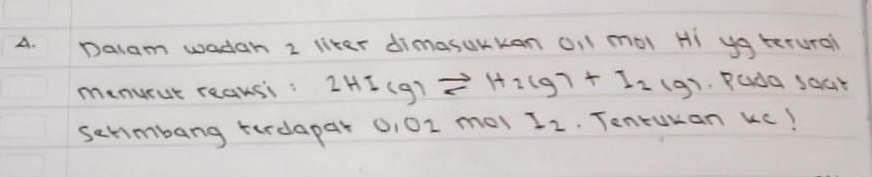 4. Dalam wadah 2 liter dimasukkan 0,1 mol HI yg terurai
menurut reaksi : 2HI(g) ⇌ H2(g) + I2(g). Pada saat
setimbang terdapat 0,02 mol I2. Tentukan Kc!